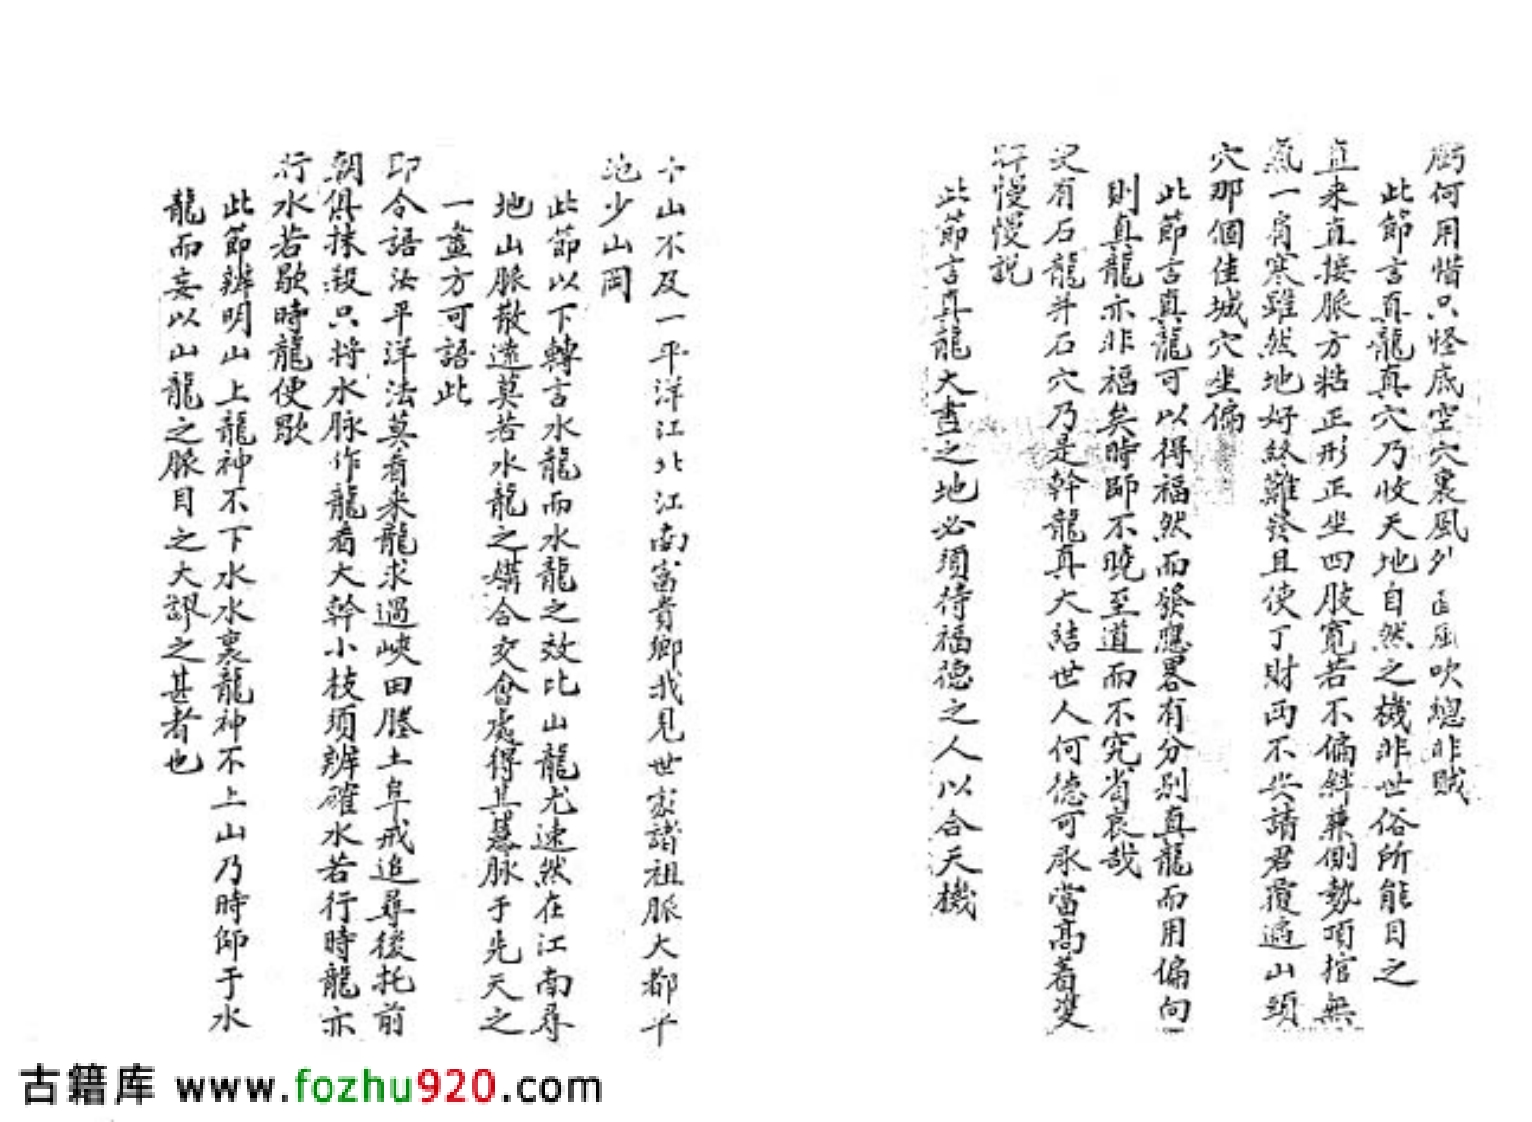 何用惜只怪底空穴裏風外面風吹總非賊
此節言真龍真穴乃收天地自然之機非世俗所能目之
直来直接脈方粘正形正坐四肢寬若不偏斜兼側勢頂棺無
氣一肩寒雖然地好终難發且使丁財両不失請君覆遍山頭
穴那個佳城穴坐偏
此節言真龍可以得福然而發應畧有分别真龍而用偏向
則真龍亦非福矣時師不曉至道而不究省哀哉
又有石龍并石穴乃是幹龍真大結世人何德可承當高着雙
眸慢慢説
此節言真龍大盡之地必須待福德之人以合天機
十山不及一平洋江北江南富貴鄉我見世家諸祖脈大都平
池少山岡
此節以下轉言水龍而水龍之效比山龍尤速然在江南尋
地山脈散逺莫若水龍之媾合交會處得其慕脈于先天之
一畫方可語此
即今語汝平洋法莫看来龍求過峽田塍土阜戒追尋後托前
朝俱抹殺只将水脉作龍看大幹小枝須辨確水若行時龍亦
行水若歇時龍便歇
此節辨明山上龍神不下水水裏龍神不上山乃時師于水
龍而妄以山龍之脈目之大謬之甚者也
古籍库 www.fozhu920.com